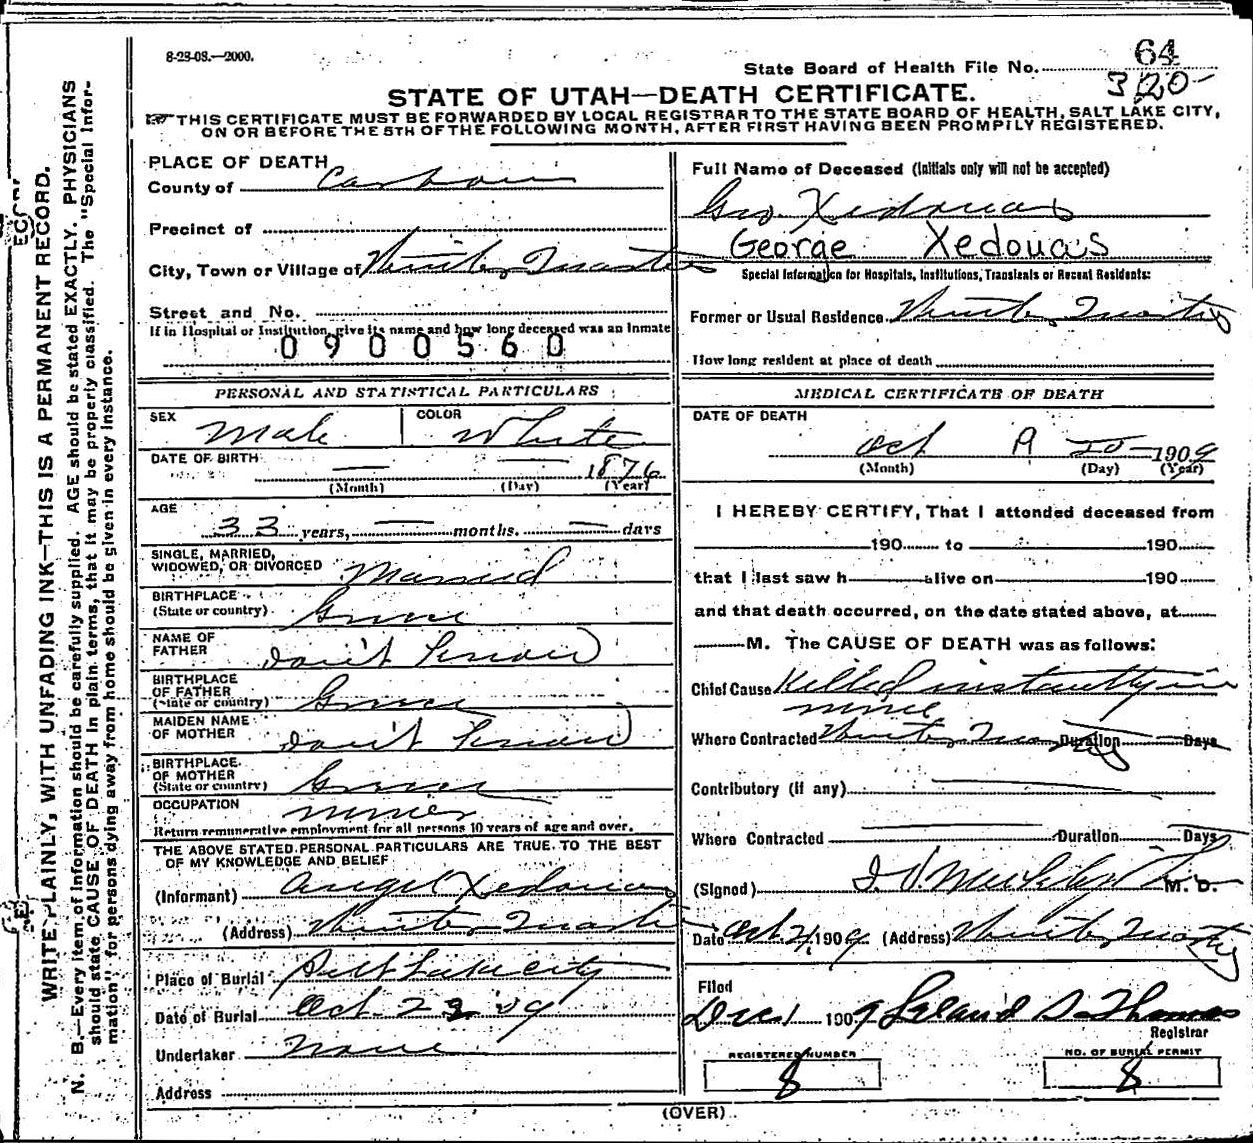 8-23-08.—2000.
State Board of Health File No. 64
3120-
STATE OF UTAH—DEATH CERTIFICATE.
THIS CERTIFICATE MUST BE FORWARDED BY LOCAL REGISTRAR TO THE STATE BOARD OF HEALTH, SALT LAKE CITY,
ON OR BEFORE THE 5TH OF THE FOLLOWING MONTH, AFTER FIRST HAVING BEEN PROMPILY REGISTERED.
WRITE PLAINLY, WITH UNFADING INK—THIS IS A PERMANENT RECORD.
N. B.—Every item of information should be carefully supplied. AGE should be stated EXACTLY. PHYSICIANS
should state CAUSE OF DEATH in plain terms, that it may be properly classified. The "Special Infor-
mation" for persons dying away from home should be given in every instance.
PLACE OF DEATH
County of Carbon
Precinct of
City, Town or Village of Winter Quarters
Street and No.
If in Hospital or Institution, give its name and how long deceased was an Inmate
0 9 0 0 5 6 0
PERSONAL AND STATISTICAL PARTICULARS
SEX Male COLOR White
DATE OF BIRTH — — 1876
(Month) (Day) (Year)
AGE
33 years, — months. — days
SINGLE, MARRIED,
WIDOWED, OR DIVORCED Married
BIRTHPLACE
(State or country) Greece
NAME OF
FATHER don't know
BIRTHPLACE
OF FATHER
(State or country) Greece
MAIDEN NAME
OF MOTHER don't know
BIRTHPLACE
OF MOTHER
(State or country) Greece
OCCUPATION miner
Return remunerative employment for all persons 10 years of age and over.
THE ABOVE STATED PERSONAL PARTICULARS ARE TRUE TO THE BEST
OF MY KNOWLEDGE AND BELIEF
(Informant) Angel Xedouas
(Address) Winter Quarters
Place of Burial Salt Lake City
Date of Burial Oct. 23 09
Undertaker None
Address
Full Name of Deceased (Initials only will not be accepted)
Geo. Xedouas
George Xedouas
Special Information for Hospitals, Institutions, Transients or Recent Residents:
Former or Usual Residence Winter Quarters
How long resident at place of death
MEDICAL CERTIFICATE OF DEATH
DATE OF DEATH
Oct 20 1909
(Month) (Day) (Year)
I HEREBY CERTIFY, That I attended deceased from
190 to 190
that I last saw h alive on 190
and that death occurred, on the date stated above, at
M. The CAUSE OF DEATH was as follows:
Chief Cause Killed instantly in
mine
Where Contracted Winter Quarters Duration Days
Contributory (if any)
Where Contracted Duration Days
(Signed) M. D.
Date Oct. 21, 1909 (Address) Winter Quarters
Filed
Dec 1 1909 Leland S. Thomas
Registrar
REGISTERED NUMBER
8
NO. OF BURIAL PERMIT
8
(OVER)